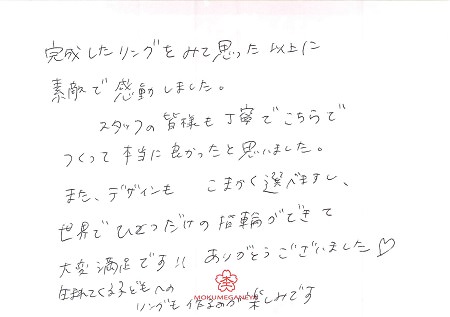 完成したリングをみて思った以上に
素敵で感動しました。
スタッフの皆様も丁寧でこちらで
つくって本当に良かったと思いました。
また、デザインも こまかく選べますし、
世界でひとつだけの指輪ができて
大変満足です!! ありがとうございました♡
生まれてくる子どもへの
リングも作るのが楽しみです
MOKUMEGANEYA